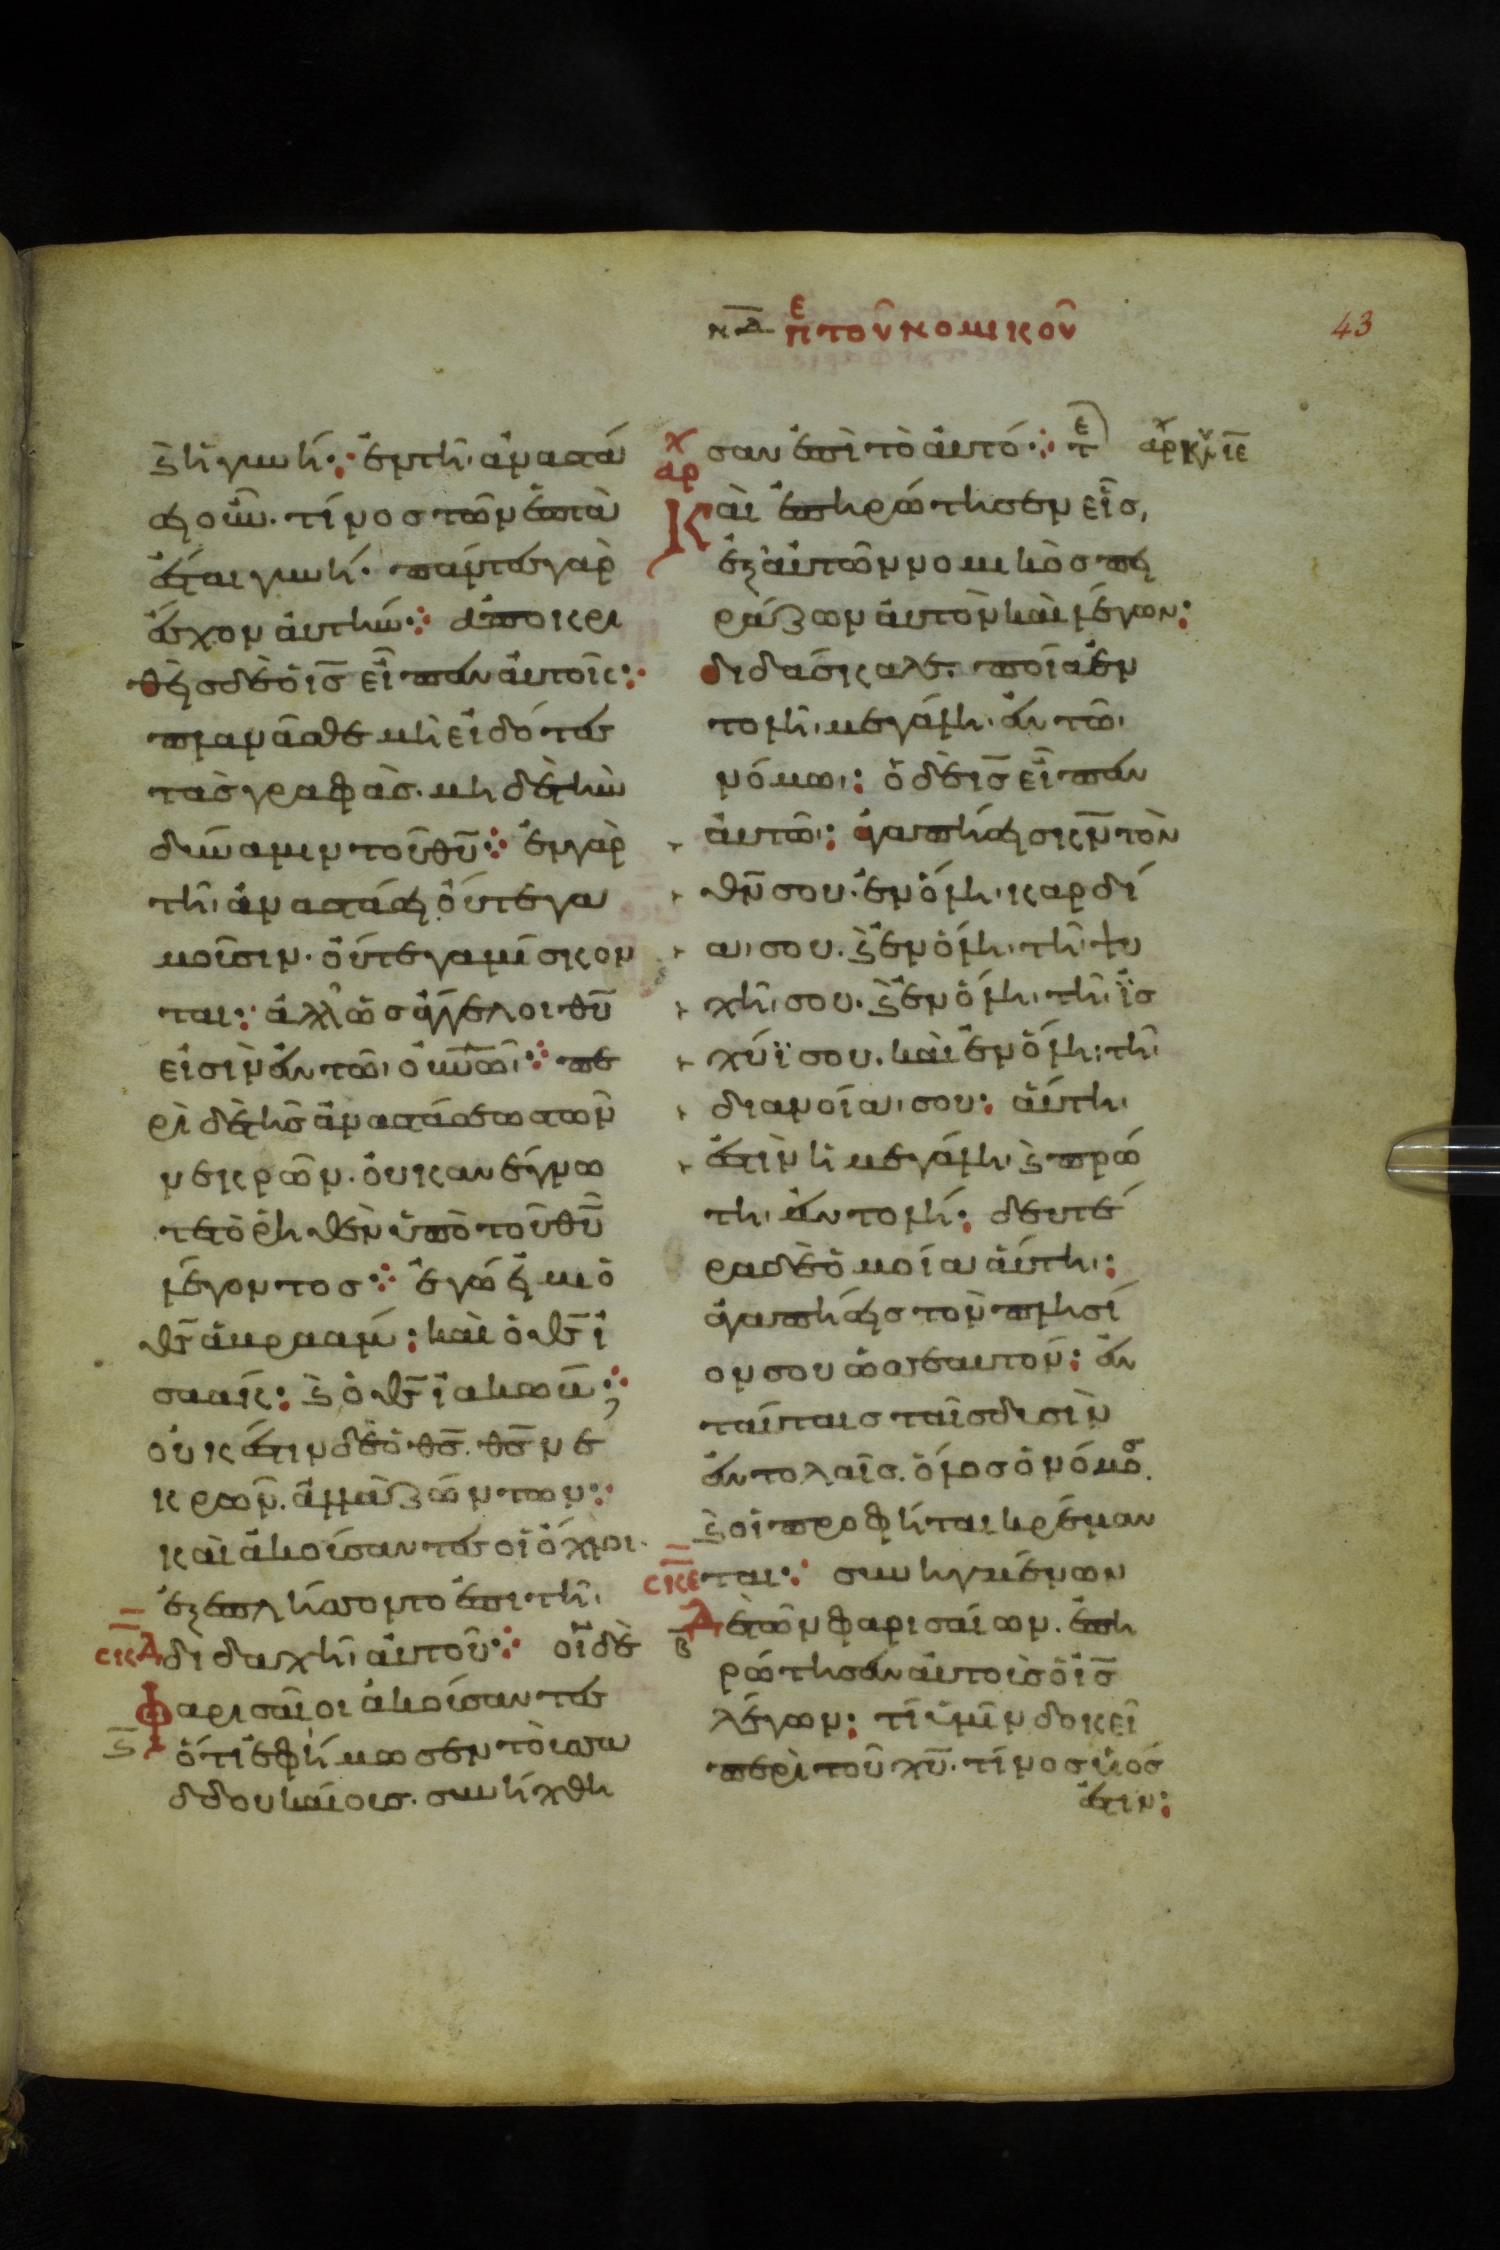 ν̅δ̅ πε τοῦ νομικοῦ
43
ϛ̀ ἡ γυνή· ἐν τῆ ἀναστά
σει οὖν· τίνος τῶν ἑπτὰ
ἔσται γυνή· πάντες γὰρ
ἔσχον αὐτήν· ἀποκρι
θεὶς δὲ ὁ ι̅ς̅ εἶπεν αὐτοῖς·
πλανᾶσθε μὴ εἰδότες
τὰς γραφὰς· μὴ δὲ τὴν
δύναμιν τοῦ θ̅υ̅· ἐν γὰρ
τῆ ἀναστάσει οὔτε γα
μοῦσιν· οὔτε γαμίσκον
ται· ἀλλ' ὡς ἄγγελοι θ̅υ̅
εἰσὶν ἐν τῶ οὐ̅ν̅ω̅· πε
ρὶ δὲ τῆς ἀναστάσεως τῶν
νεκρῶν· οὐκ ἀνέγνω
τε τὸ ῥηθὲν ὑπὸ τοῦ θ̅υ̅
λέγοντος· ἐγώ εἰμι ὁ
θ̅ς̅ ἀβραάμ· καὶ ὁ θ̅ς̅ ἰ
σαάκ· ϛ̀ ὁ θ̅ς̅ ἰακώβ·
οὐκ ἔστιν δὲ ὁ θ̅ς̅ θ̅ς̅ νε
κρῶν· ἀλλὰ ζώντων·
καὶ ἀκούσαντες οἱ ὄχλοι
ἐξεπλήσσοντο ἐπι τῆ
σ̅κ̅δ̅ διδαχῆ αὐτοῦ· οἱ δὲ
φαρισαῖοι ἀκούσαντες
ϛ̅ ὅτι ἐφίμωσεν τοὺς σα
δδουκαίους· συνήχθη
χ
αρ
σαν ἐπὶ τὸ αὐτό· τε ἀρχ κυ ι̅ε̅
Καὶ ἐπηρώτησεν εἷς,
ἐξ αὐτῶν νομικὸς πει
ράζων αὐτὸν καὶ λέγων·
διδάσκαλε· ποία ἐν
τολὴ μεγάλη ἐν τῶ
νόμω· ὁ δὲ ι̅ς̅ εἶπεν
αὐτῶ· ἀγαπήσεις κ̅ν̅ τὸν
θ̅ν̅ σου· ἐν ὅλη καρδί
α σου. ϛ̀ ἐν ὅλη τῆ ψυ
χῆ σου· ϛ̀ ἐν ὅλη τῆ ἰσ
χύϊ σου· καὶ ἐν ὅλη τῆ
διανοία σου· αὕτη
ἐστὶν ἡ μεγάλη ϛ̀ πρώ
τη ἐντολή· δευτέ
ρα δὲ ὁμοία αὕτη·
ἀγαπήσεις τὸν πλησί
ον σου ὡς ἑαυτόν· ἐν
ταύταις ταῖς δυσὶν
ἐντολαῖς· ὅλος ὁ νόμος
ϛ̀ οἱ προφῆται κρέμαν
σ̅κ̅ε̅ ται· συνηγμένων
β̅ Δὲ τῶν φαρισαίων· ἐπη
ρώτησεν αὐτοὺς ὁ ι̅ς̅
λέγων· τί ὑμῖν δοκεῖ
περὶ τοῦ χ̅υ̅· τίνος υἱός
ἐστιν·